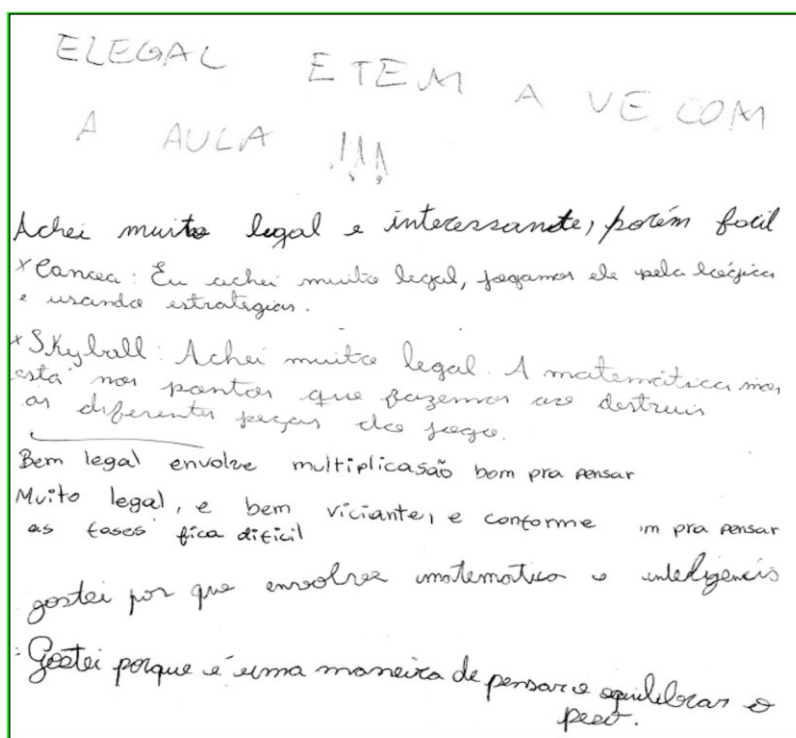 ELEGAL ETEM A VE COM
A AULA !!!
Achei muito legal e interessante, porém facil
x Canoa: Eu achei muito legal, jogamos ele pela lógica
e usando estrategias.
x Skyball: Achei muito legal. A matemática nos
está nos pontos que fazemos ao destruir
as diferentes peças do jogo.
Bem legal envolve multiplicasão bom pra pensar
Muito legal, e bem viciante, e conforme m pra pensar
as fases fica dificil
gostei por que envolve matematica e inteligencia
Gostei porque é uma maneira de pensar e equilibrar o
peso.